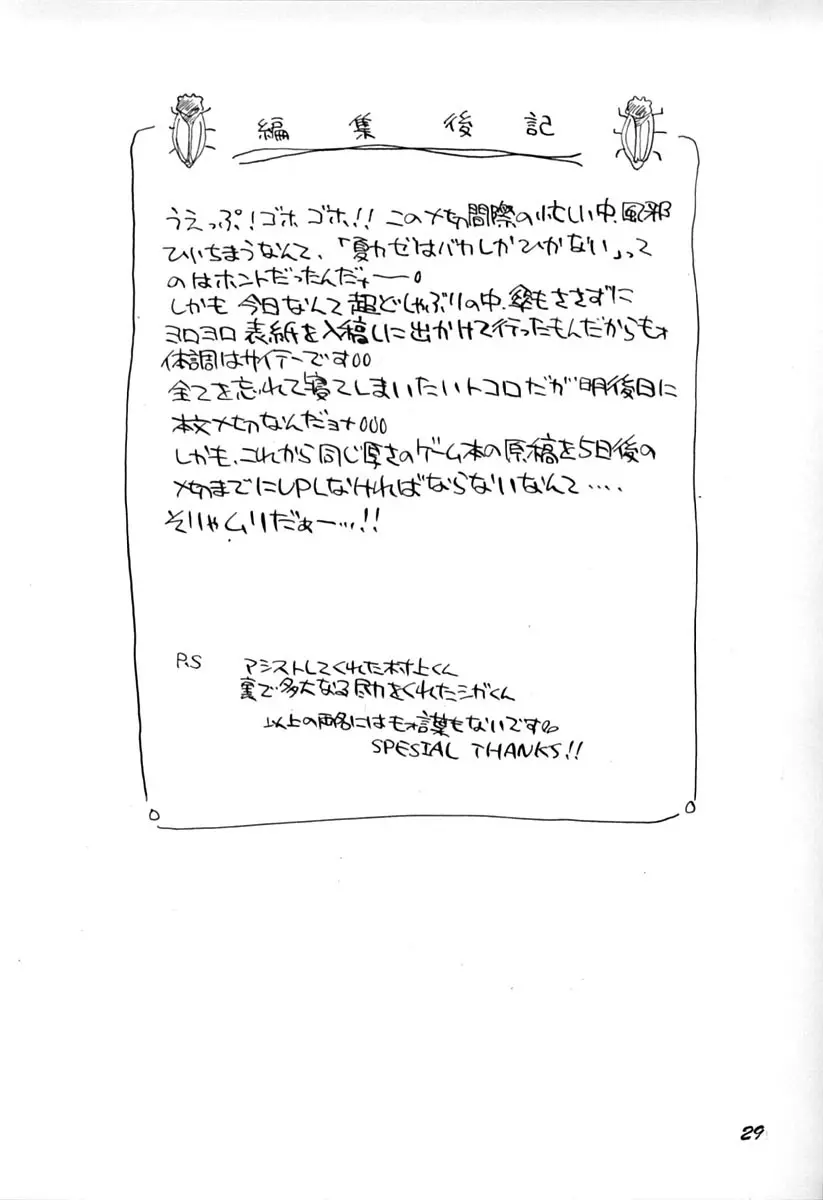 編集後記
うえっぷ!ゴホ ゴホ!! この〆切間際の忙しい中、風邪
ひいちまうなんて、「夏カゼはバカしかひかない」って
のはホントだったんだナー。
しかも 今日なんて超どしゃぶりの中、傘もささずに
ヨロヨロ 表紙を入稿しに出かけて行ったもんだからもォ
体調はサイテーです00
全てを忘れて寝てしまいたいトコロだが明後日に
本文〆切なんだョナ000
しかも、これから同じ厚さのゲーム本の原稿を5日後の
〆切までにUPしなければならないなんて....
そりゃムリだぁー...!!
P.S アシストしてくれた村上くん
裏で多大なる尽力をくれたシガくん
以上の両名にはもォ言葉もないです
SPESIAL THANKS!!
29